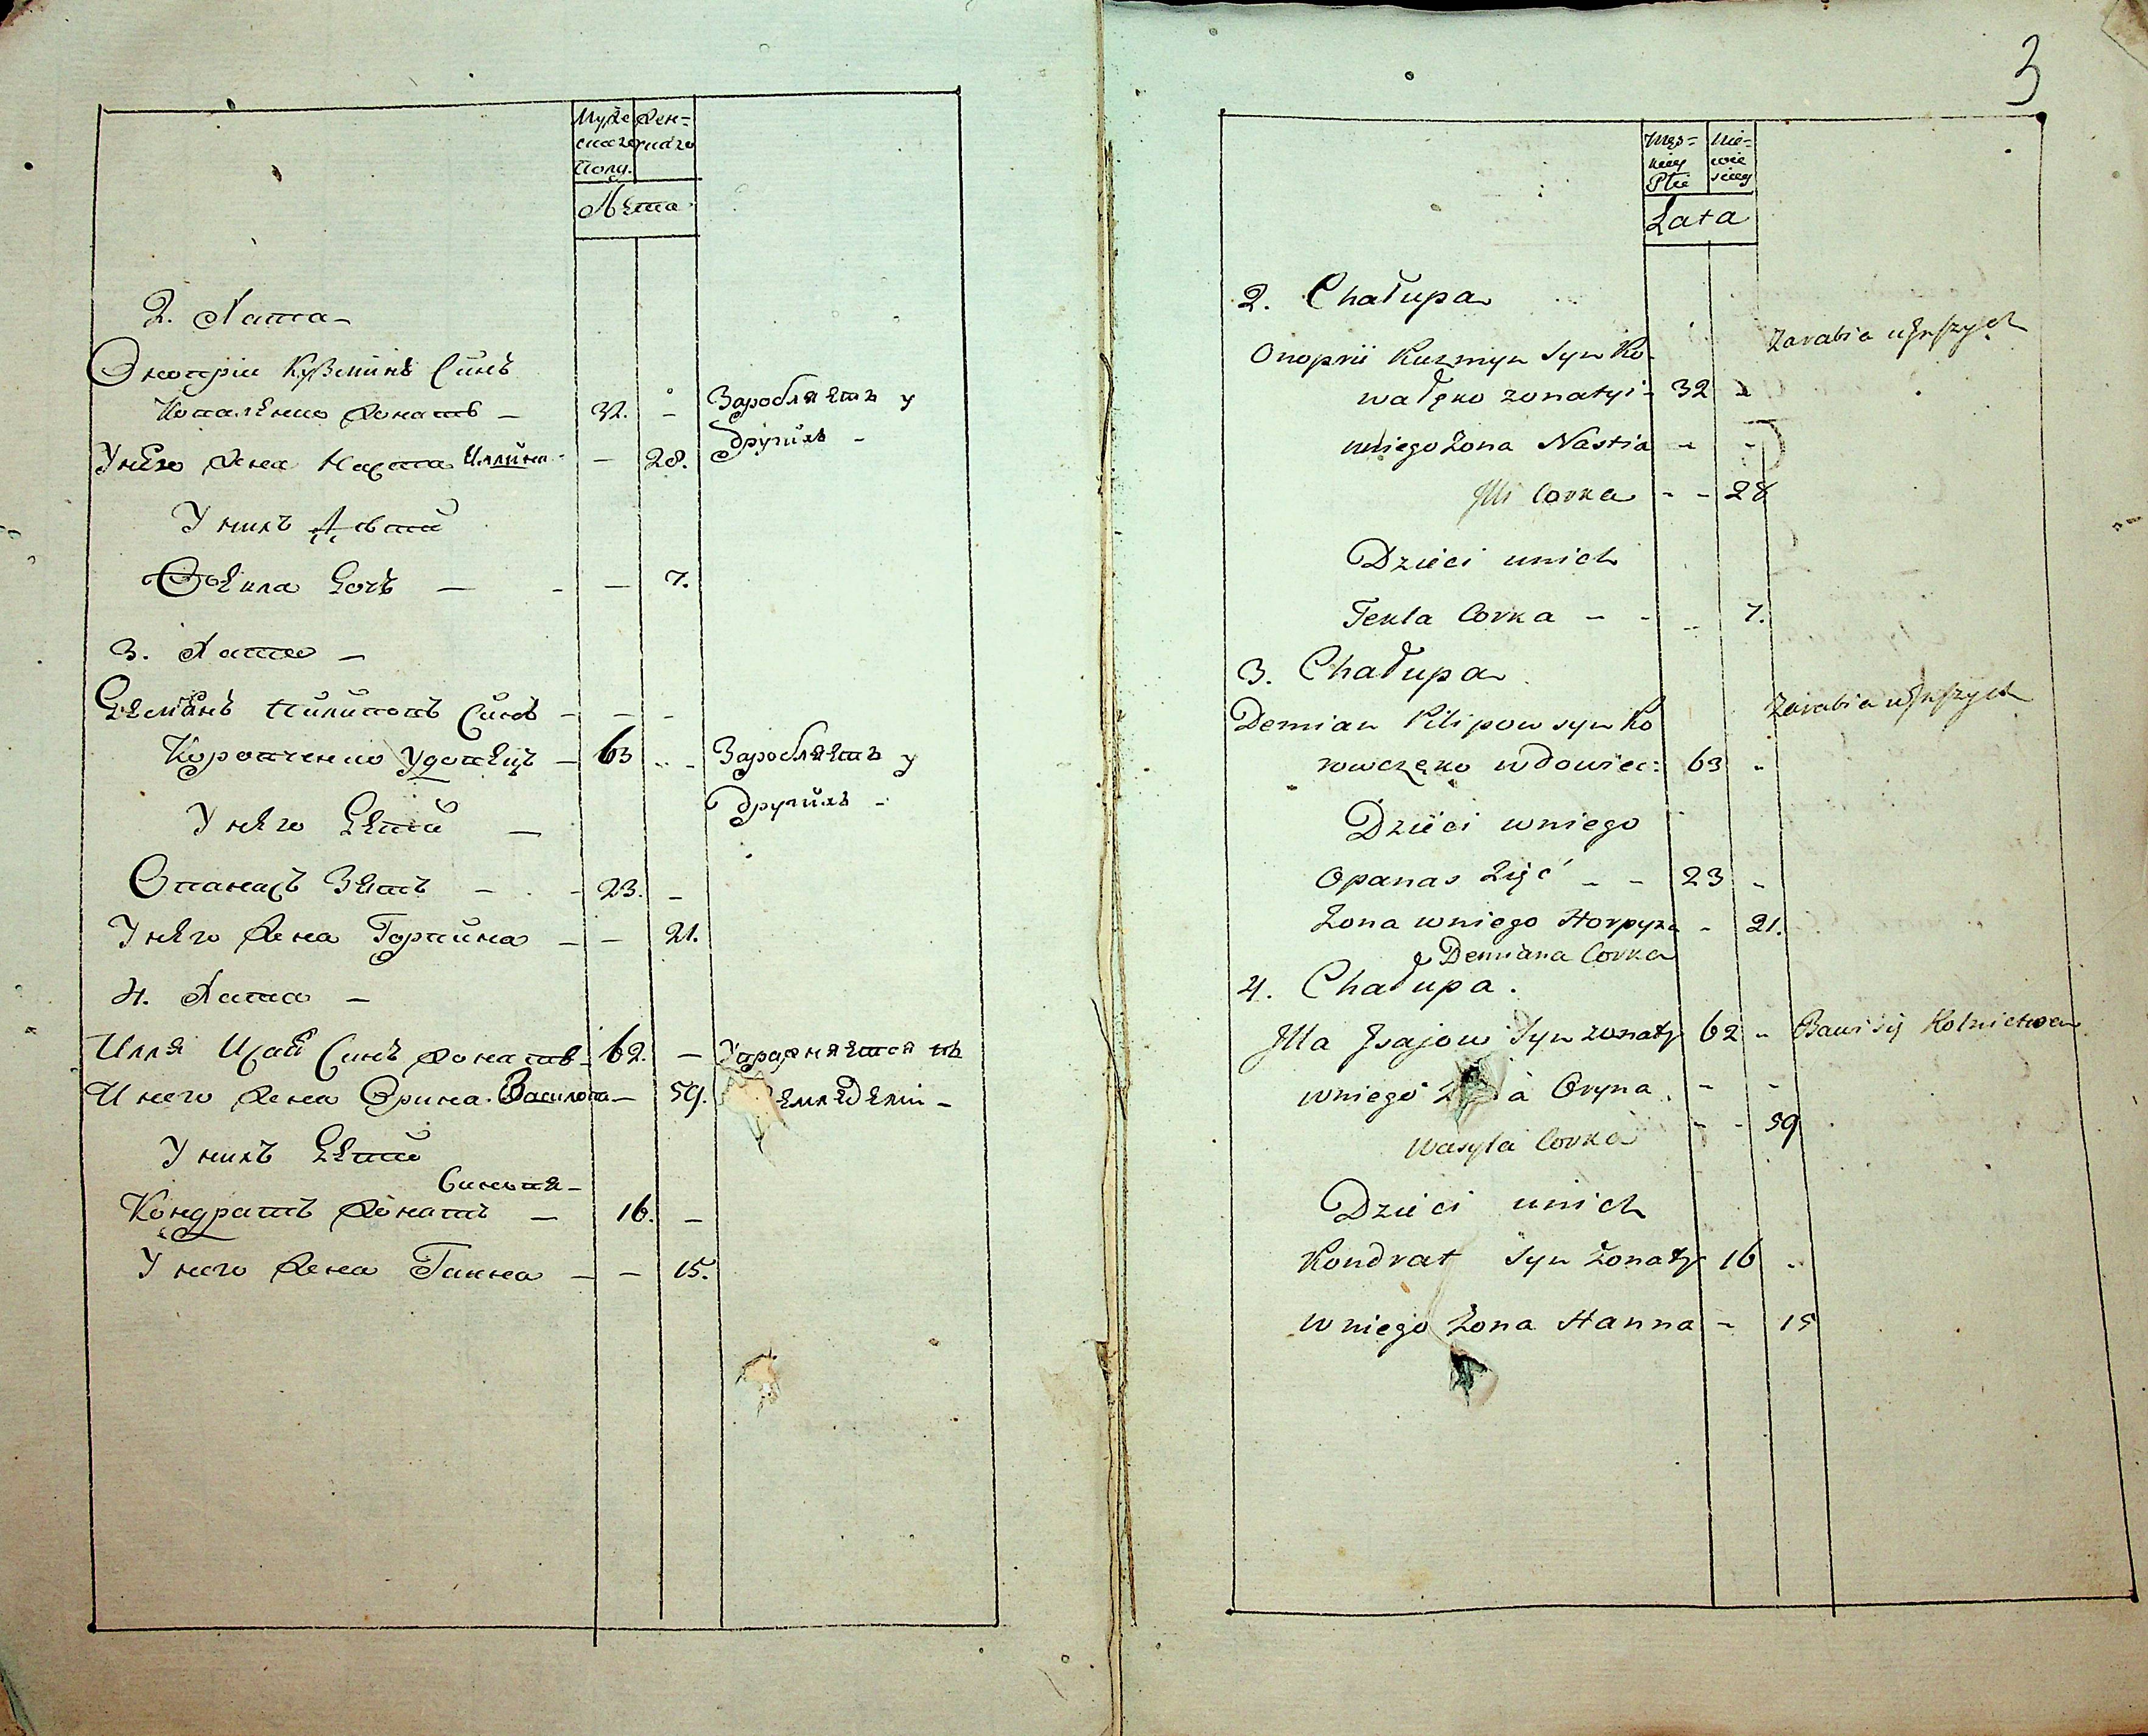 Муже
скаго
Полу.
Жен=
скаго
Лѣта
2. Хата –
Онопрій Кузминъ Синъ
Ковалѣнко Жонатъ – 32. –
Заробляетъ у
другихъ –
У него Жена Настя Иллина – – 28.
У нихъ Дѣти
Ѳекла Дочъ – – – 7.
3. Хата –
Демянъ Пилиповъ Синъ – – –
Коровченко Удовецъ – 63 – –
Заробляетъ у
другихъ –
У него Дети –
Опанасъ Зять – – 23. –
У него Жена Горпина – – 21.
4. Хата –
Илля Исаи Синъ жонатъ – 62. –
Упражняется въ
И него Жена Орина Василова – 59.
У нихъ Дети
Синовя –
Кондратъ Жонатъ – 16. –
У него Жена Ганна – – 15.
3
Męs=
kiey
Płci
Nie=
wie
sciey
Lata
2. Chałupa
Onoprii Kuzmyn Syn Ko
Zarabia u Jnszych
walęko zonatyi – 32 –
uniego Zona Nastia – –
Jlli Corka – – 28
Dzieci unich
Tekla Corka – – – 7.
3. Chałupa
Demian Pilipow syn Ko
Zarabia u Jnszych
rowczęko wdowiec: 63 –
Dzieci wniego
Opanas Zięć – – 23 –
Zona wniego Horpyna – 21.
Demiana Corka
4. Chałupa.
Jlla Jsajow Syn zonaty 62 – Bawi się Rolnictwem
wniego Oryna. – –
Wasyla Corka – – 59
Dzieci unich
Kondrat Syn Zonaty 16 –
wniego Zona Hanna – 15